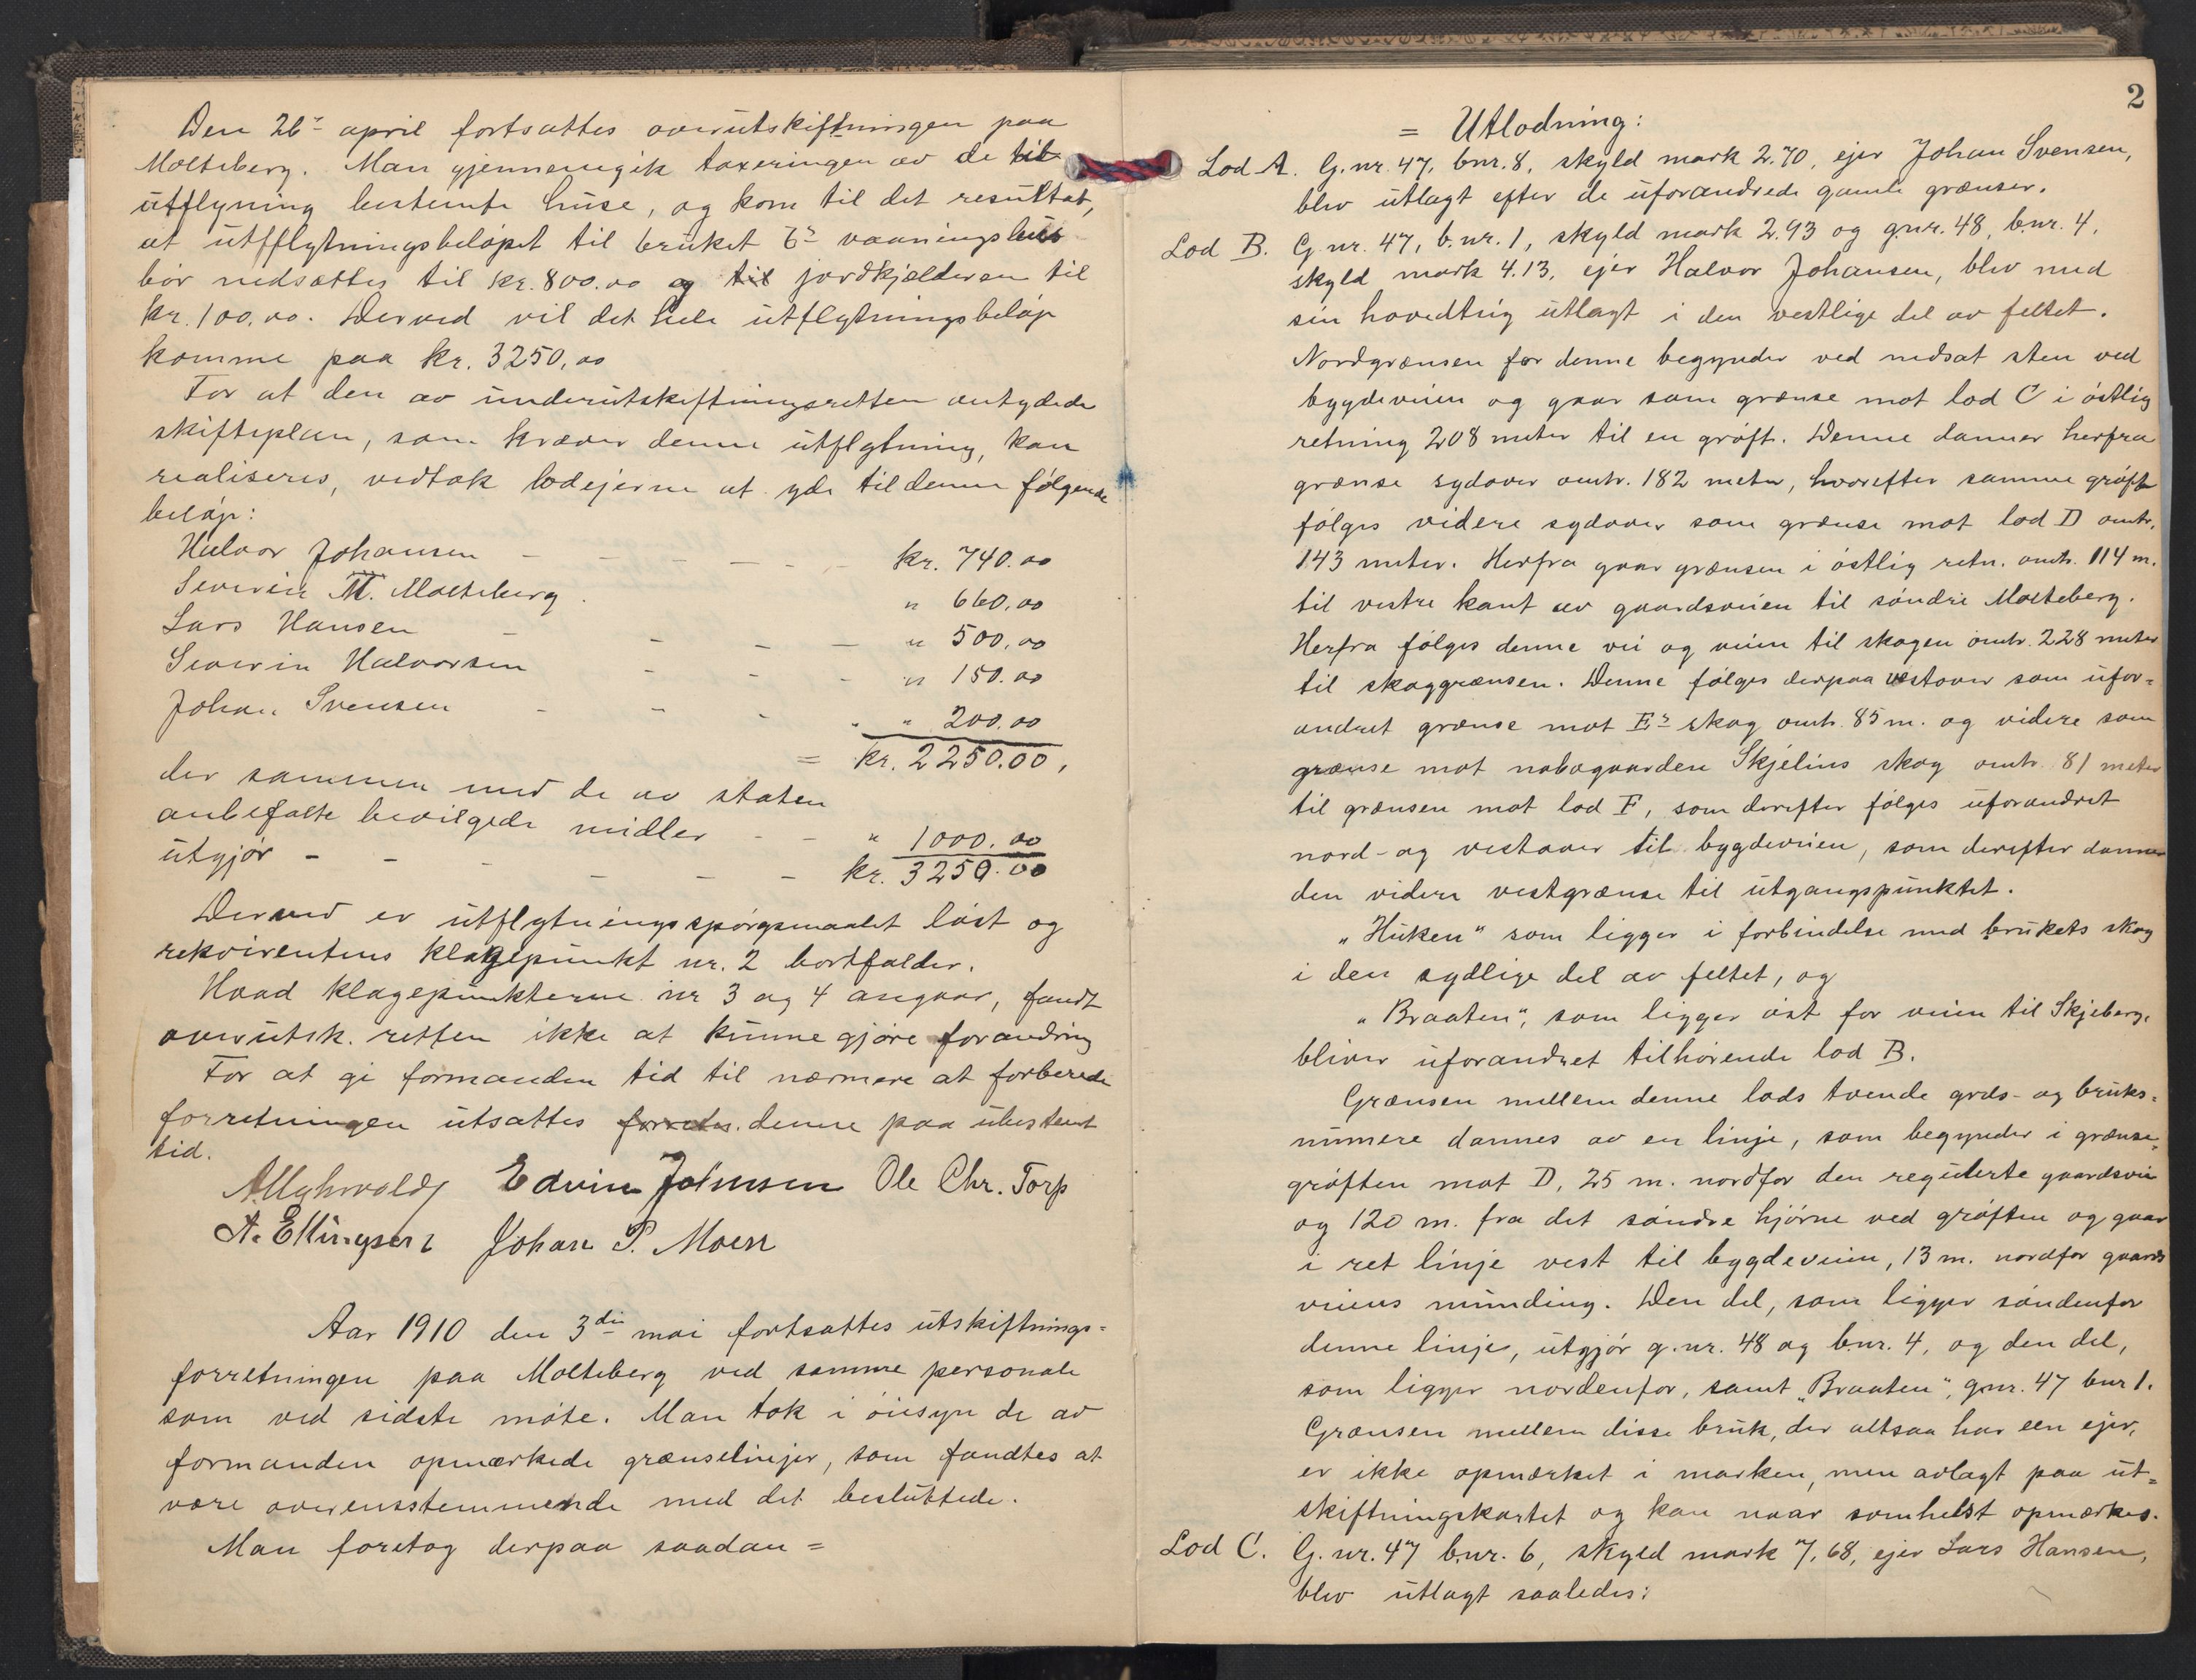 Den 26de april fortsattes overutskiftningen paa
Molteberg. Man gjennemgik taxeringen av de til
utflytning bestemte huse, og kom til det resultat,
at utfflytningsbeløpet til bruket 6s vaaningshus
bør nedsættes til kr. 800.00 og til jordkjælderen til
kr. 100.00. Derved vil det hele utflytningsbeløp
komme paa kr. 3250,00
For at den av underutskiftningsretten antydede
skifteplan, som kræver denne utflytning, kan
realiseres, vedtok lodejerne at yde til denne følgende
beløp:
Halvor Johansen - - - - - kr. 740.00
Severin M. Molteberg. " 660,00
Lars Hansen - - - - " 500,00
Severin Halvorsen - - - " 150.00
Johan Svensen - - - " " 200.00
= kr. 2250.00,
der sammen med de av staten
anbefalte bevilgede midler - - " 1000.00
utgjør - - - - - - kr. 3250.00
Derved er utflytningsspørgsmaalet løst og
rekvirentens klagepunkt nr. 2 bortfalder.
Hvad klagepunkterne nr 3 og 4 angaar, fandt
overutsk. retten ikke at kunne gjøre forandring
For at gi formanden tid til nærmere at forberede
forretningen utsattes forretn. denne paa ubestemt
tid.
A. Myhrvold Edvin Johnsen Ole Chr. Torp
A. Ellingsen Johan P. Moen
Aar 1910 den 3die mai fortsattes utskiftnings=
forretningen paa Molteberg ved samme personale
som ved sidste møte. Man tok i øiesyn de av
formanden opmærkede grænselinjer, som fandtes at
være overensstemmende med det besluttede.
Man foretog derpaa saadan =
2
= Utlodning:
Lod A. G. nr. 47, bnr. 8, skyld mark 2.70, ejer Johan Svensen,
blev utlagt efter de uforandrede gamle grænser.
Lod B. G. nr. 47, b. nr. 1, skyld mark 2.93 og g.nr. 48, b.nr. 4,
skyld mark 4.13, ejer Halvor Johansen, blev med
sin hovedteig utlagt i den vestlige del av feltet.
Nordgrænsen for denne begynder ved nedsat sten ved
bygdeveien og gaar som grænse mot lod C i østlig
retning 208 meter til en grøft. Denne danner herfra
grænse sydover omtr. 182 meter, hvorefter samme grøft
følges videre sydover som grænse mot lod D omtr.
143 meter. Herfra gaar grænsen i østlig retn. omtr. 114 m.
til vestre kant av gaardsveien til søndre Molteberg.
Herfra følges denne vei og veien til skogen omtr. 228 meter
til skoggrænsen. Denne følges derpaa vestover som ufor=
andret grænse mot Es skog omtr. 85 m. og videre som
grænse mot nabogaarden Skjelins skog omtr. 81 meter
til grænsen mot lod F, som derefter følges uforandret
nord- og vestover til bygdeveien, som derefter danner
den videre vestgrænse til utgangspunktet.
"Huken" som ligger i forbindelse med brukets skog
i den sydlige del av feltet, og
"Braaten", som ligger øst for veien til Skjeberg,
bliver uforandret tilhørende lod B.
Grænsen mellem denne lods tvende grds- og bruks=
numere dannes av en linje, som begynder i grænse=
grøften mot D, 25 m. nordfor den regulerte gaardsvei
og 120 m. fra det søndre hjørne ved grøften og gaar
i ret linje vest til bygdeveien, 13 m. nordfor gaards
veiens munding. Den del, som ligger søndenfor
denne linje, utgjør g. nr. 48 og b.nr. 4, og den del,
som ligger nordenfor, samt "Braaten", gnr. 47 bnr 1.
Grænsen mellem disse bruk, der altsaa har een ejer,
er ikke opmærket i marken, men avlagt paa ut=
skiftningskartet og kan naar somhelst opmærkes.
Lod C. G. nr. 47 b.nr. 6, skyld mark 7,68, ejer Lars Hansen,
blev utlagt saaledes: